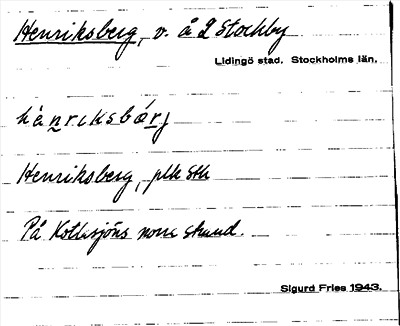 Henriksberg, v. å 2 Stockby
Lidingö stad. Stockholms län.
hȧnrıksbárj
Henriksberg, plk Sth
På Kottlasjöns norra strand.
Sigurd Fries 1943.